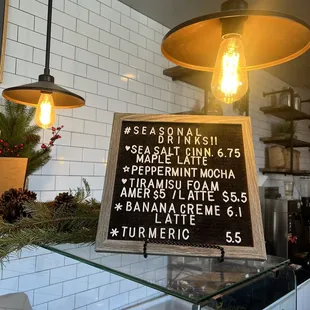 #SEASONAL
DRINKS!!
♥SEA SALT CINN. 6.75
MAPLE LATTE
*PEPPERMINT MOCHA
*TIRAMISU FOAM
AMER $5 / LATTE $5.5
*BANANA CREME 6.1
LATTE
*TURMERIC 5.5